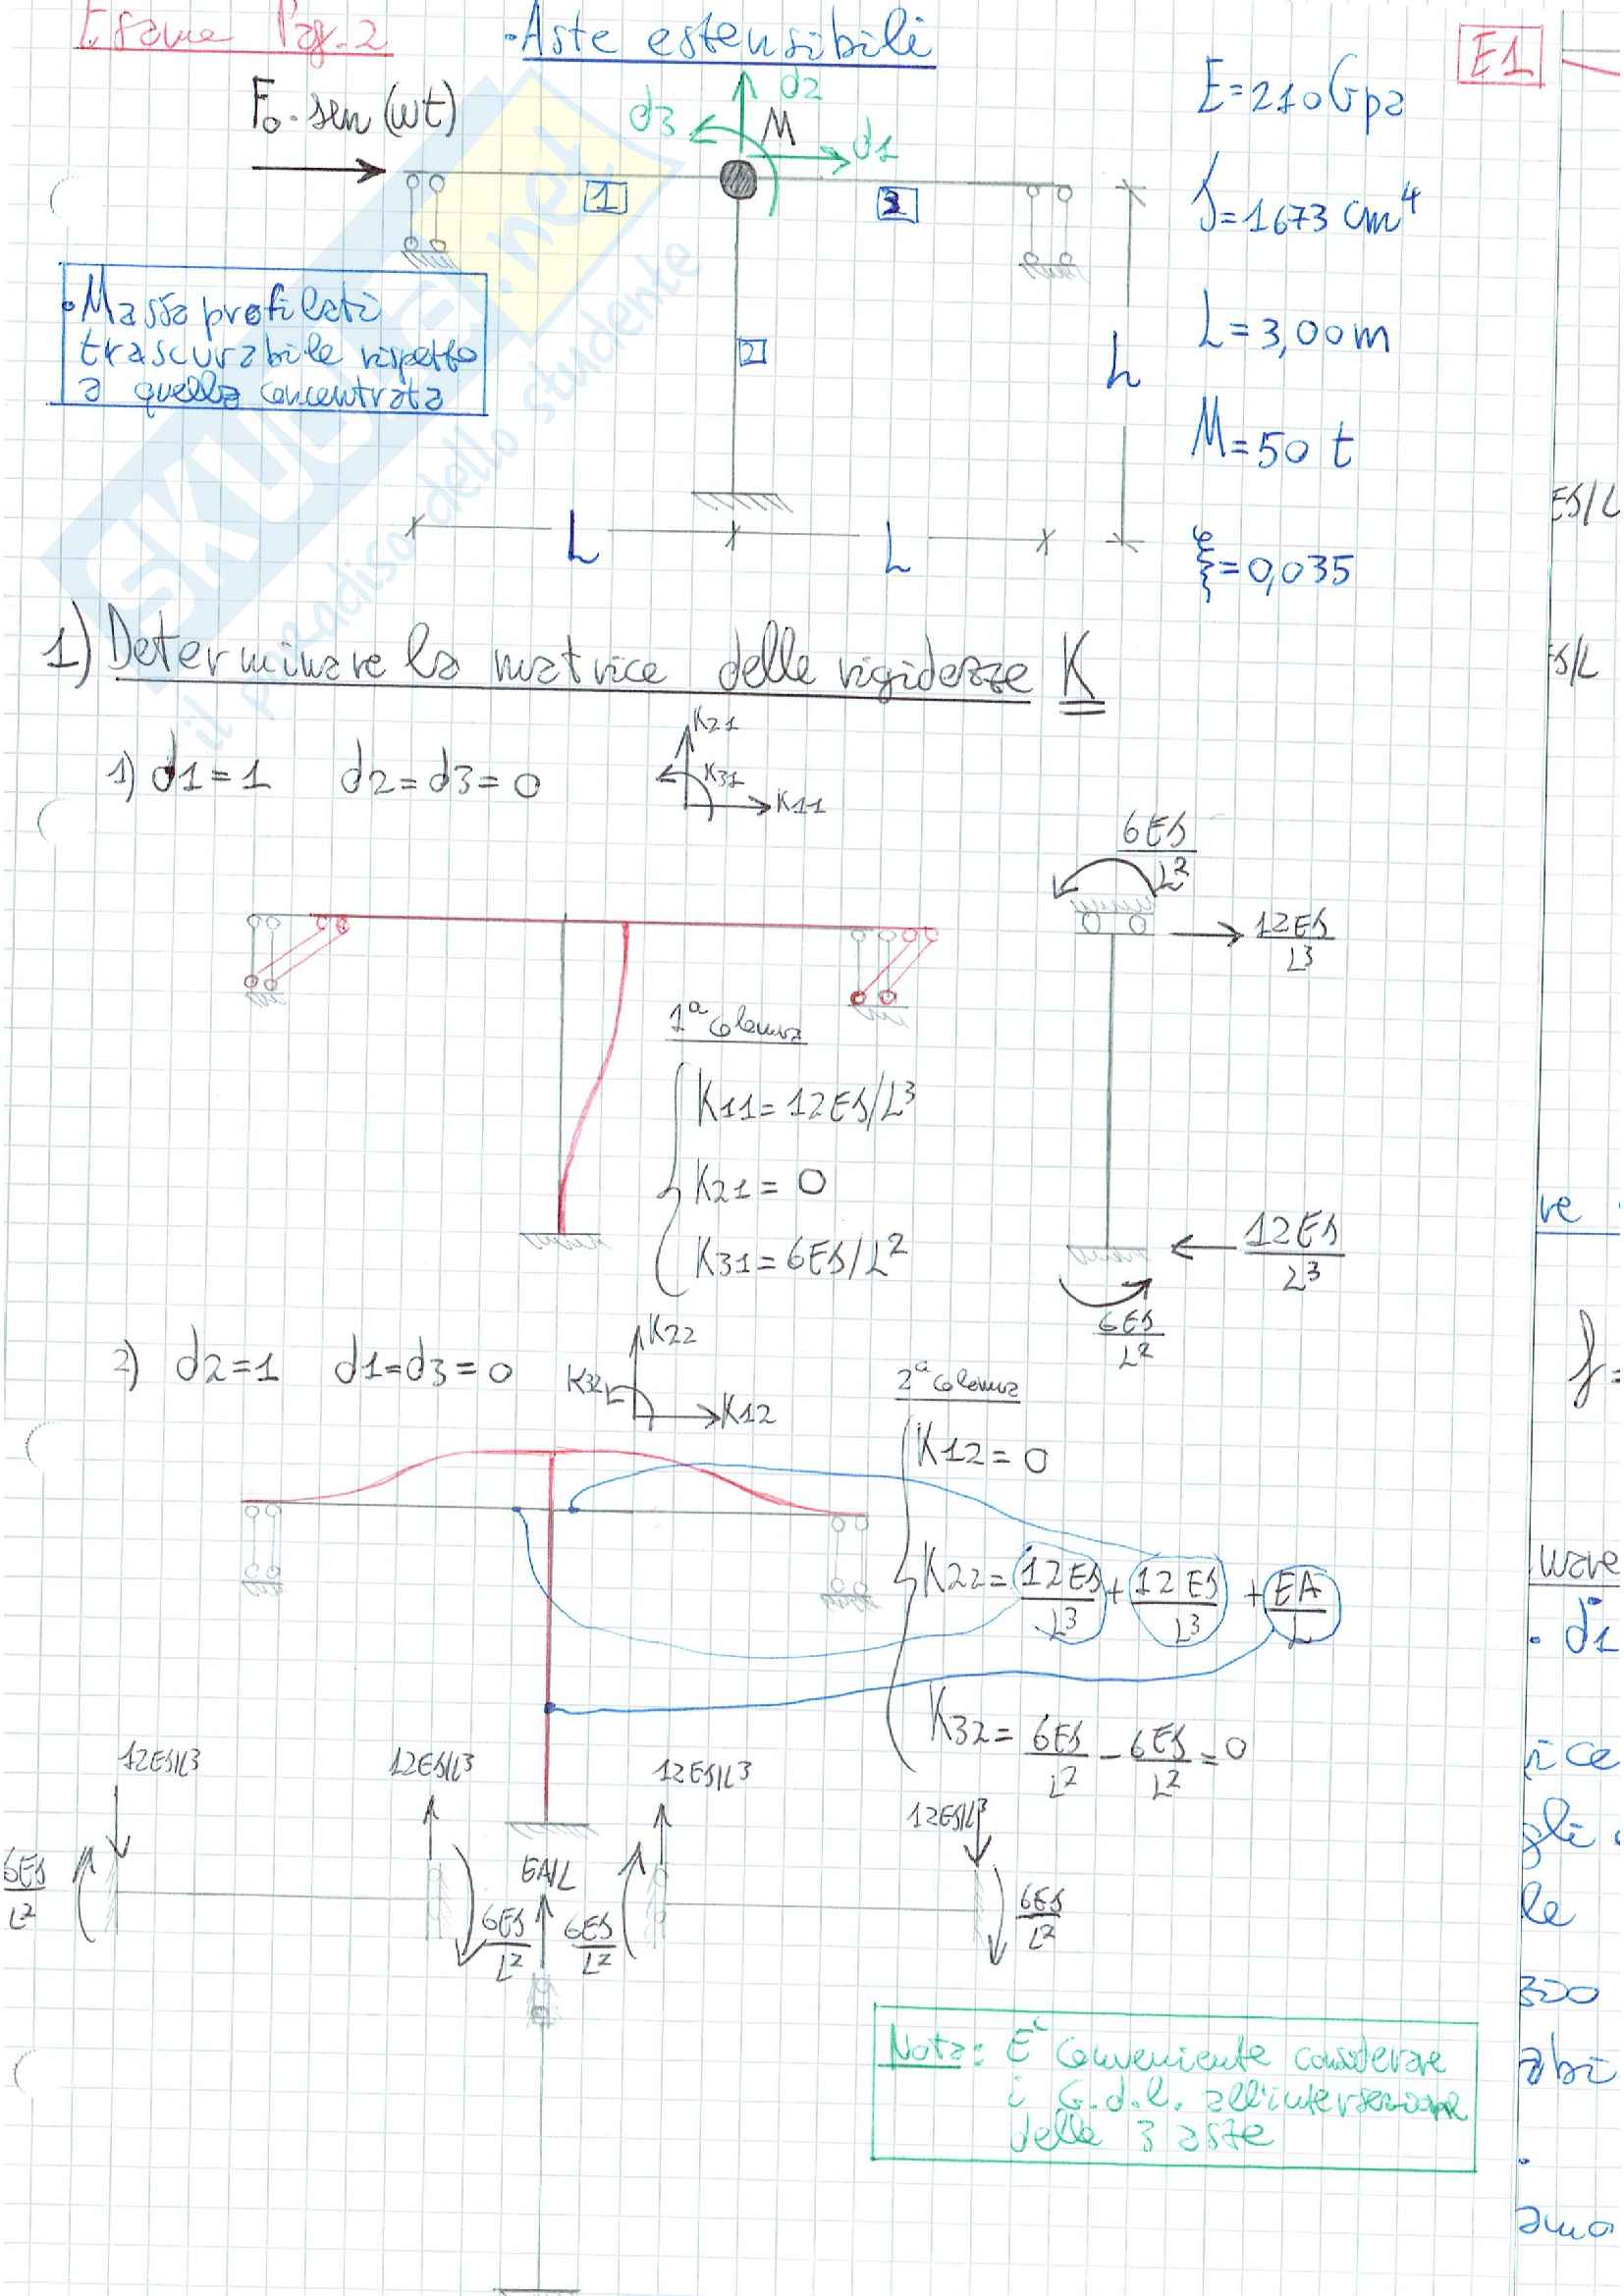 Esame Pag. 2
• Aste estensibili
E1
F0 · sen (ωt)
d3
d2
M
d1
1
3
2
E=210Gpa
J=1673 cm⁴
L=3,00m
M=50 t
ξ=0,035
• Massa profilati
trascurabile rispetto
a quella concentrata
L
L
L
SKUOLA.net
il paradiso dello studente
1) Determinare la matrice delle rigidezze K
1) d1=1 d2=d3=0
K21
K31
K11
6EJ/L²
12EJ/L³
1ª colonna
K11=12EJ/L³
K21=0
K31=6EJ/L²
12EJ/L³
6EJ/L²
2) d2=1 d1=d3=0
K22
K32
K12
2ª colonna
K12=0
K22=12EJ/L³+12EJ/L³+EA/L
K32=6EJ/L²-6EJ/L²=0
12EJ/L³
12EJ/L³
12EJ/L³
12EJ/L³
6EJ/L²
EA/L
6EJ/L²
6EJ/L²
6EJ/L²
Nota: E' conveniente considerare
i G.d.l. all'intersezione
delle 3 aste
EJ/L
J/L
ve
f=
. d1
ice
gli
le
abi